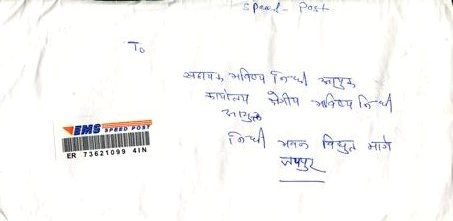 Speed - Post
To
सहायक भविष्य निधी आयुक्त
कार्यालय क्षेत्रीय भविष्य निधी
आयुक्त
निधी भवन विद्युत मार्ग
जयपुर
EMS SPEED POST
ER 73621099 4IN